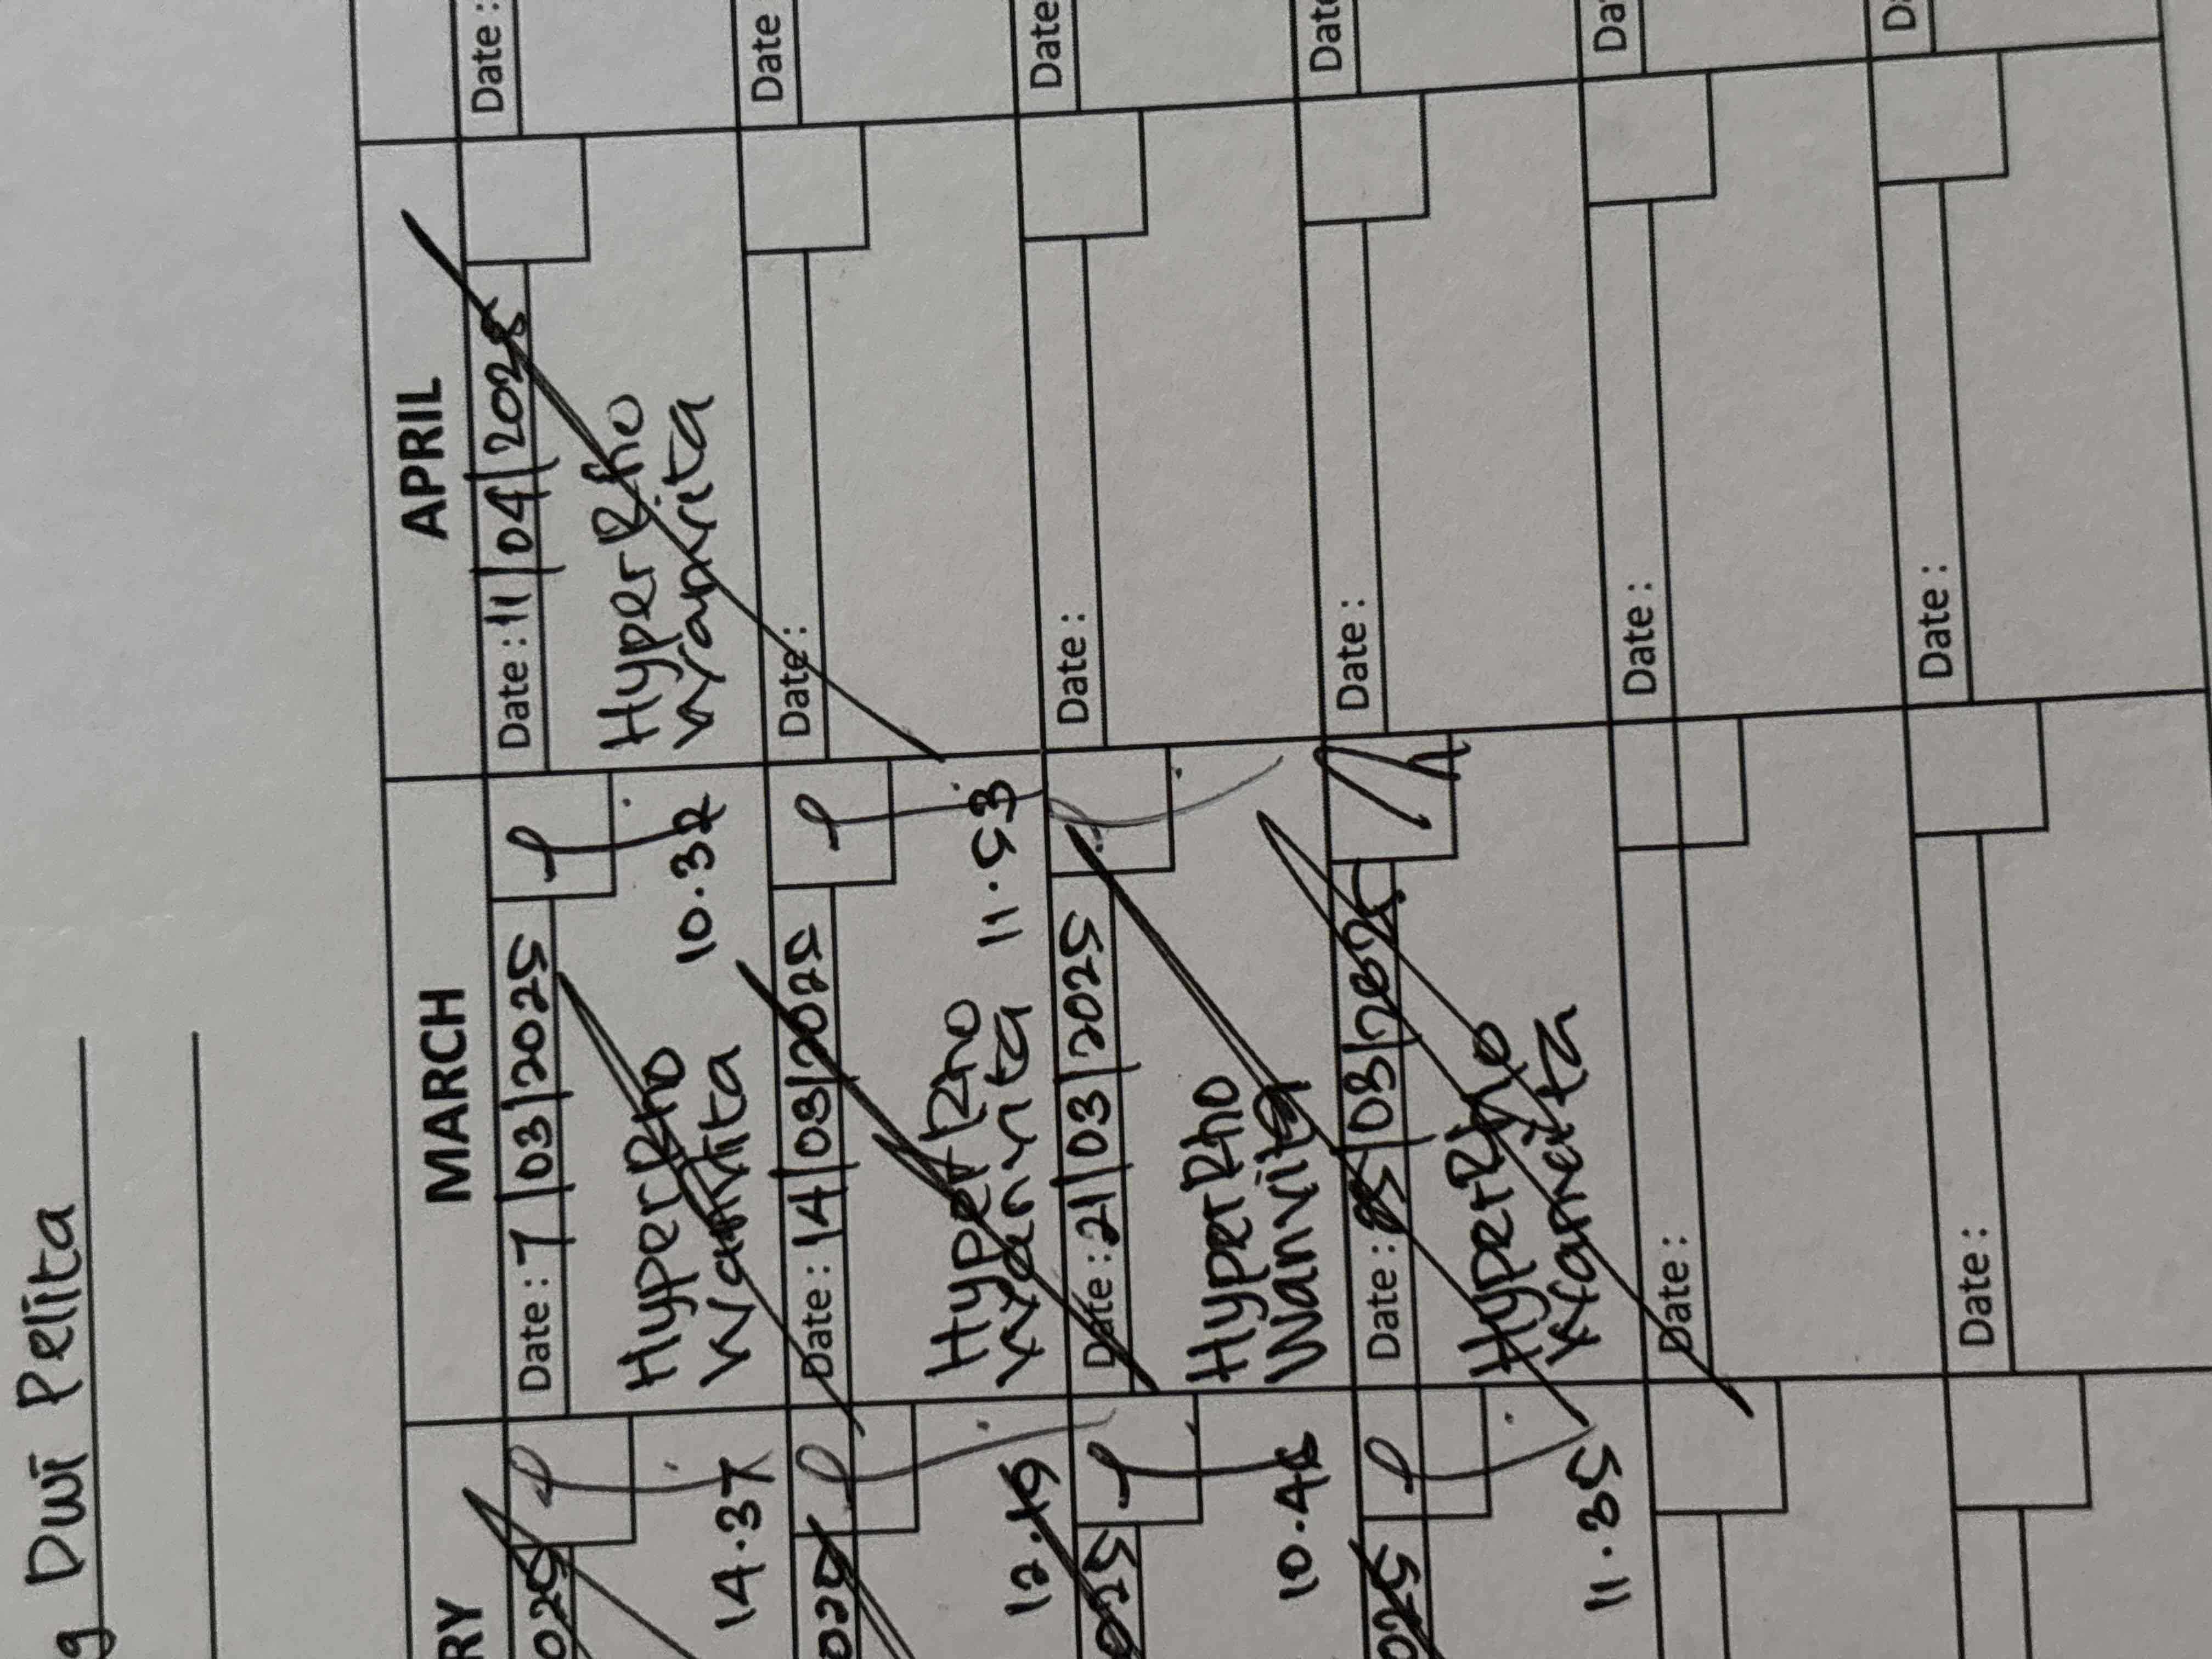 g Dwi Pelita
RY
025
14.37
025
12.19
025
10.48
025
11.35
MARCH
Date : 7/03/2025
HyperRho
Wanvita
10.32
Date : 14/03/2025
HyperRho
Wanvita
11.53
Date : 21/03/2025
HyperRho
Wanvita
Date : 03/2025
HyperRho
Wanvita
Date :
Date :
APRIL
Date : 11/04/2025
HyperRho
Wanvita
Date :
Date :
Date :
Date :
Date :
Date :
Date
Date
Dat
Da
D